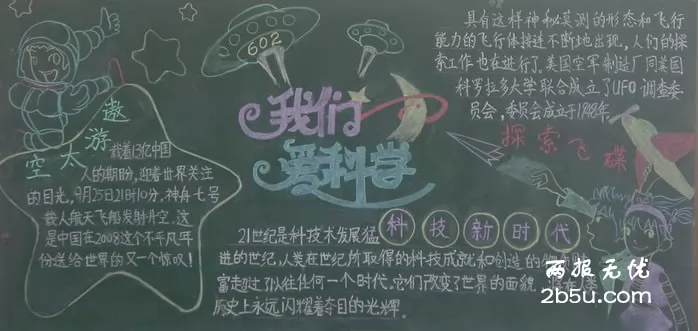 602
我们
爱科学
遨游
太空
载着13亿中国
人的期盼,迎着世界关注
的目光,9月25日21时10分,神舟七号
载人航天飞船发射升空,这
是中国在2008这个不平凡年
份送给世界的又一个惊叹!
具有这样神秘莫测的形态和飞行
能力的飞行体接连不断地出现,人们的探
索工作也在进行了。美国空军制造厂同美国
科罗拉多大学联合成立了UFO调查委
员会,委员会成立于1948年
探索飞碟
科技新时代
21世纪是科技术发展猛
进的世纪,人类在世纪所取得的科技成就和创造的
富走过了以往任何一个时代。它们改变了世界的面貌,
历史上永远闪耀着夺目的光辉。
两报无优
2b5u.com